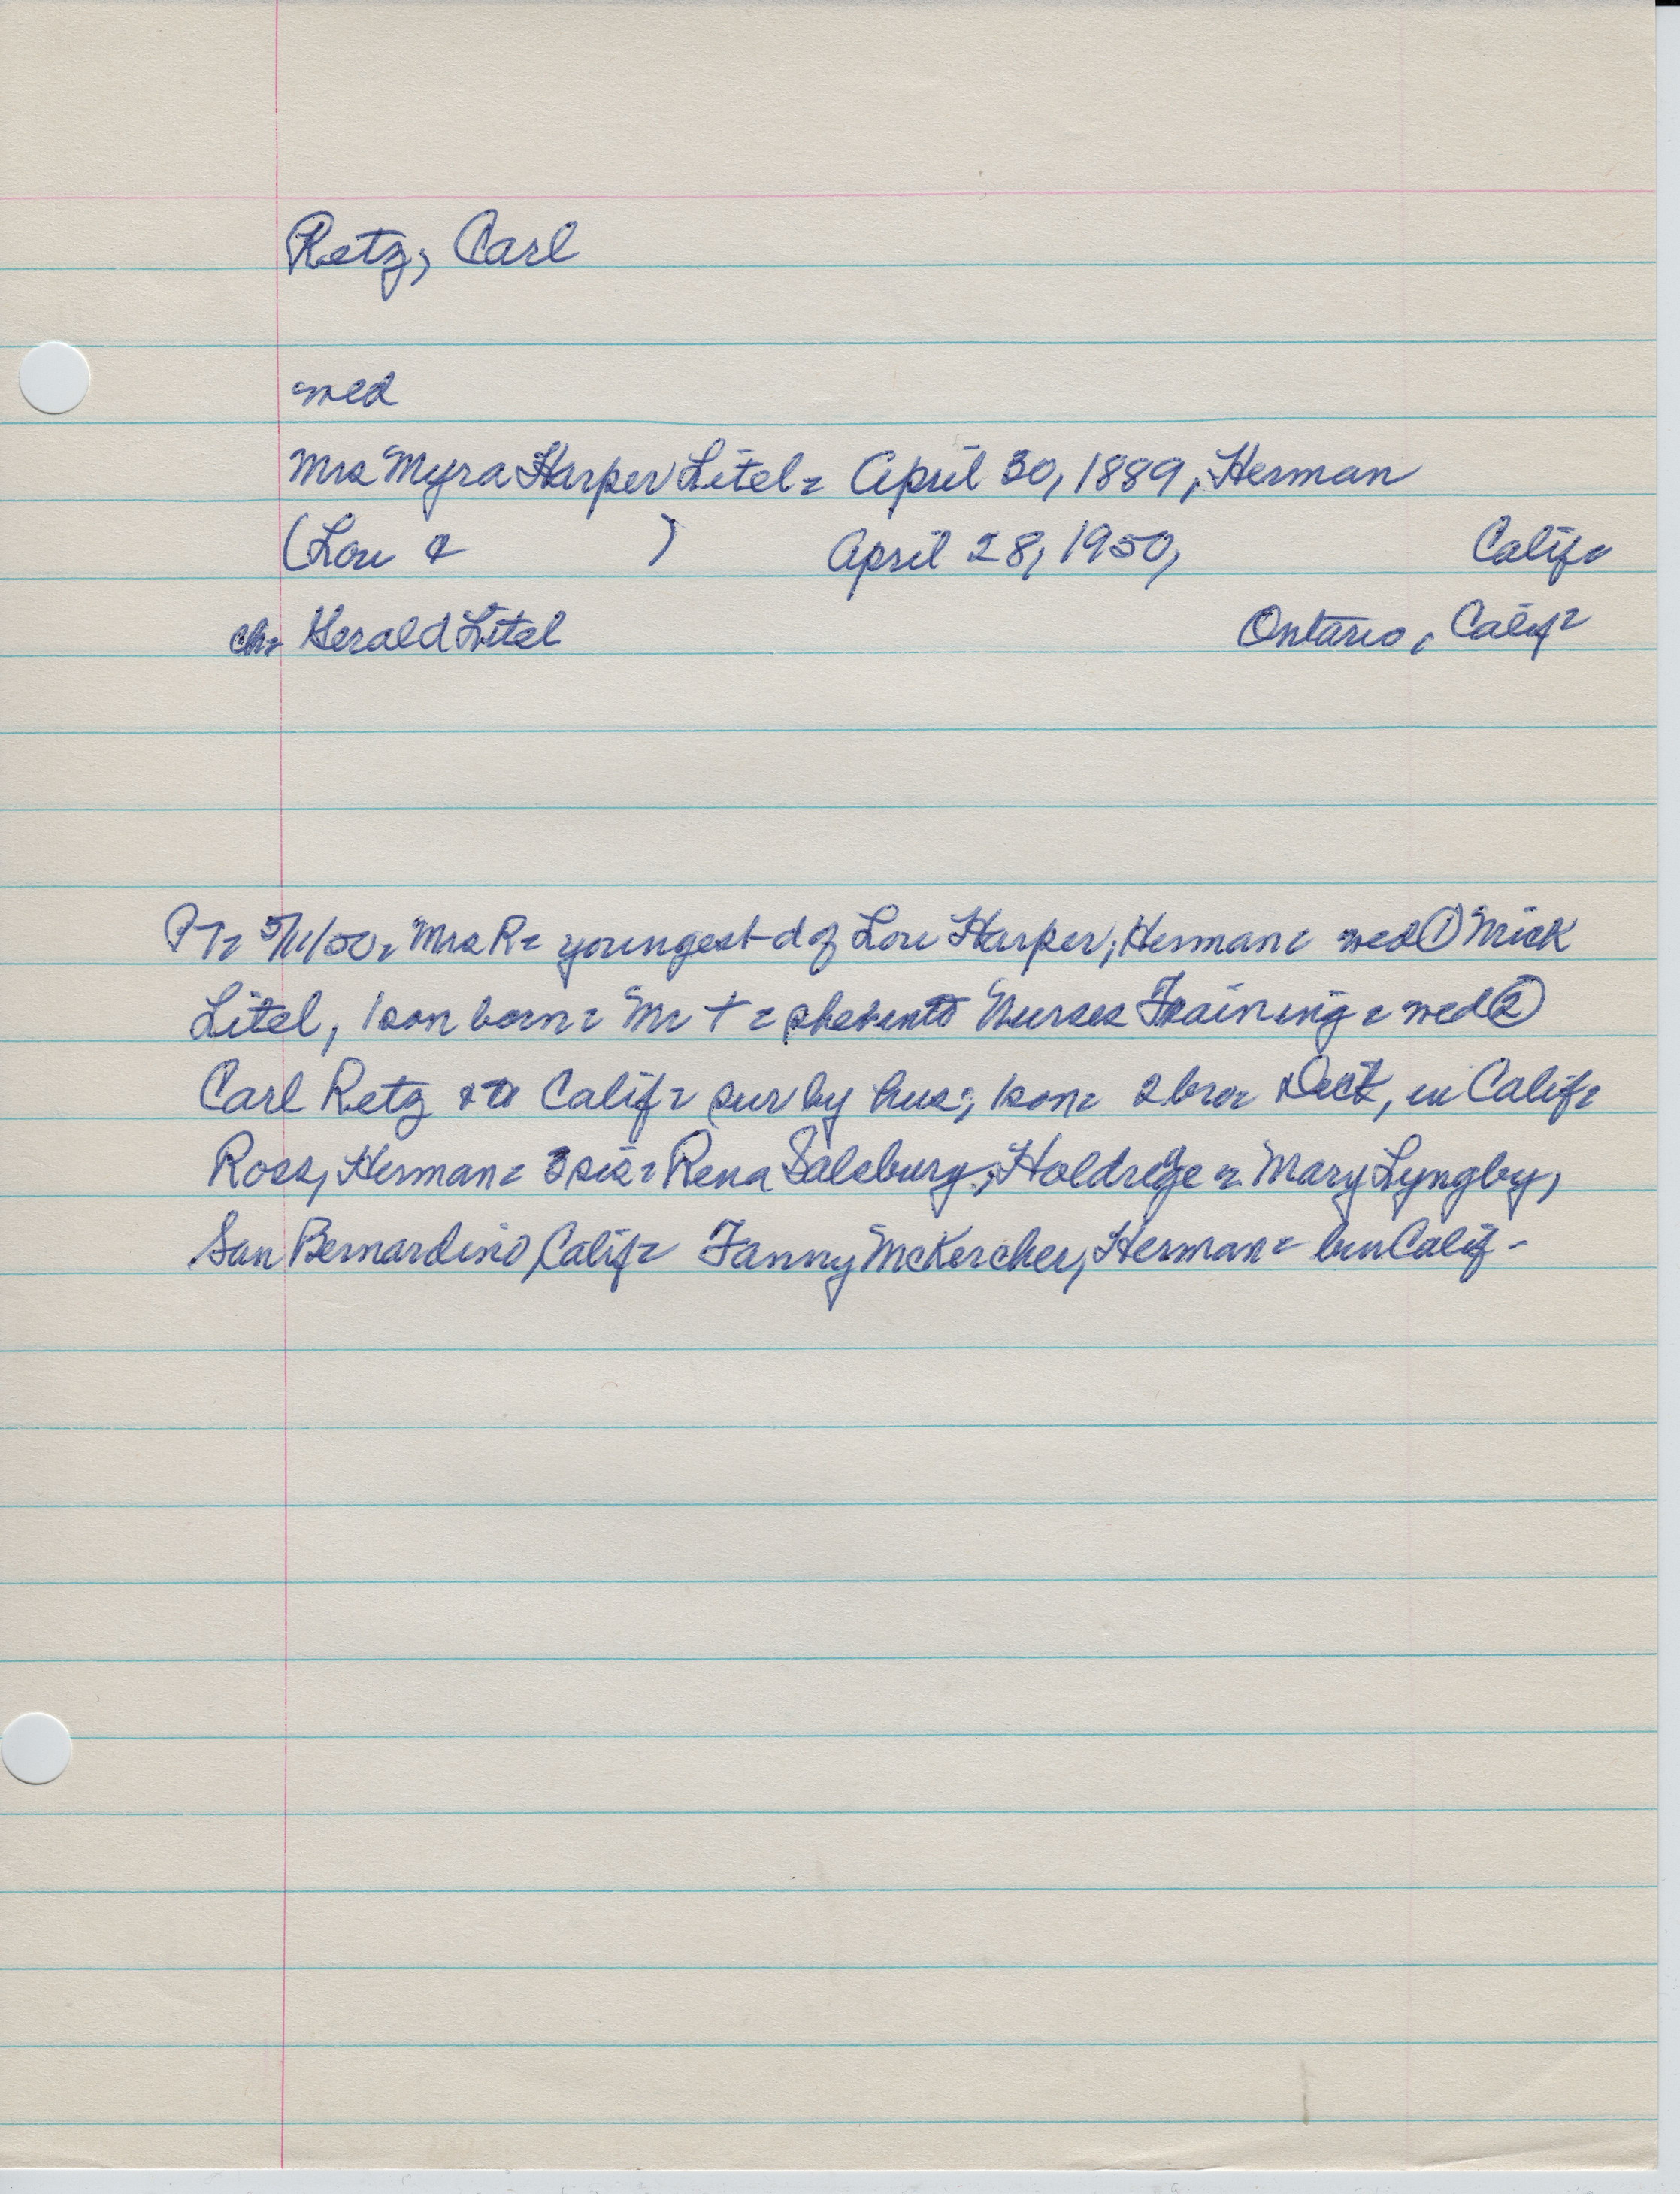 Retz, Carl
wed
Mrs Myra Harper Litel = April 30, 1889, Herman
(Lou & ) April 28, 1950, Calif =
ch = Herald Litel Ontario, Calif =
PT = 5/11/50 = Mrs R = youngest d of Lou Harper, Herman = wed ① Mick
Litel, 1 son born = Mr + = she into Nurses Training = wed ②
Carl Retz & to Calif = sur by hus; 1 son = 2 bro = Dick, in Calif =
Ross, Herman = 3 sis = Rena Salsburg, Holdrege = Mary Lyngby,
San Bernardino, Calif = Fanny McKercher, Herman = bur Calif -